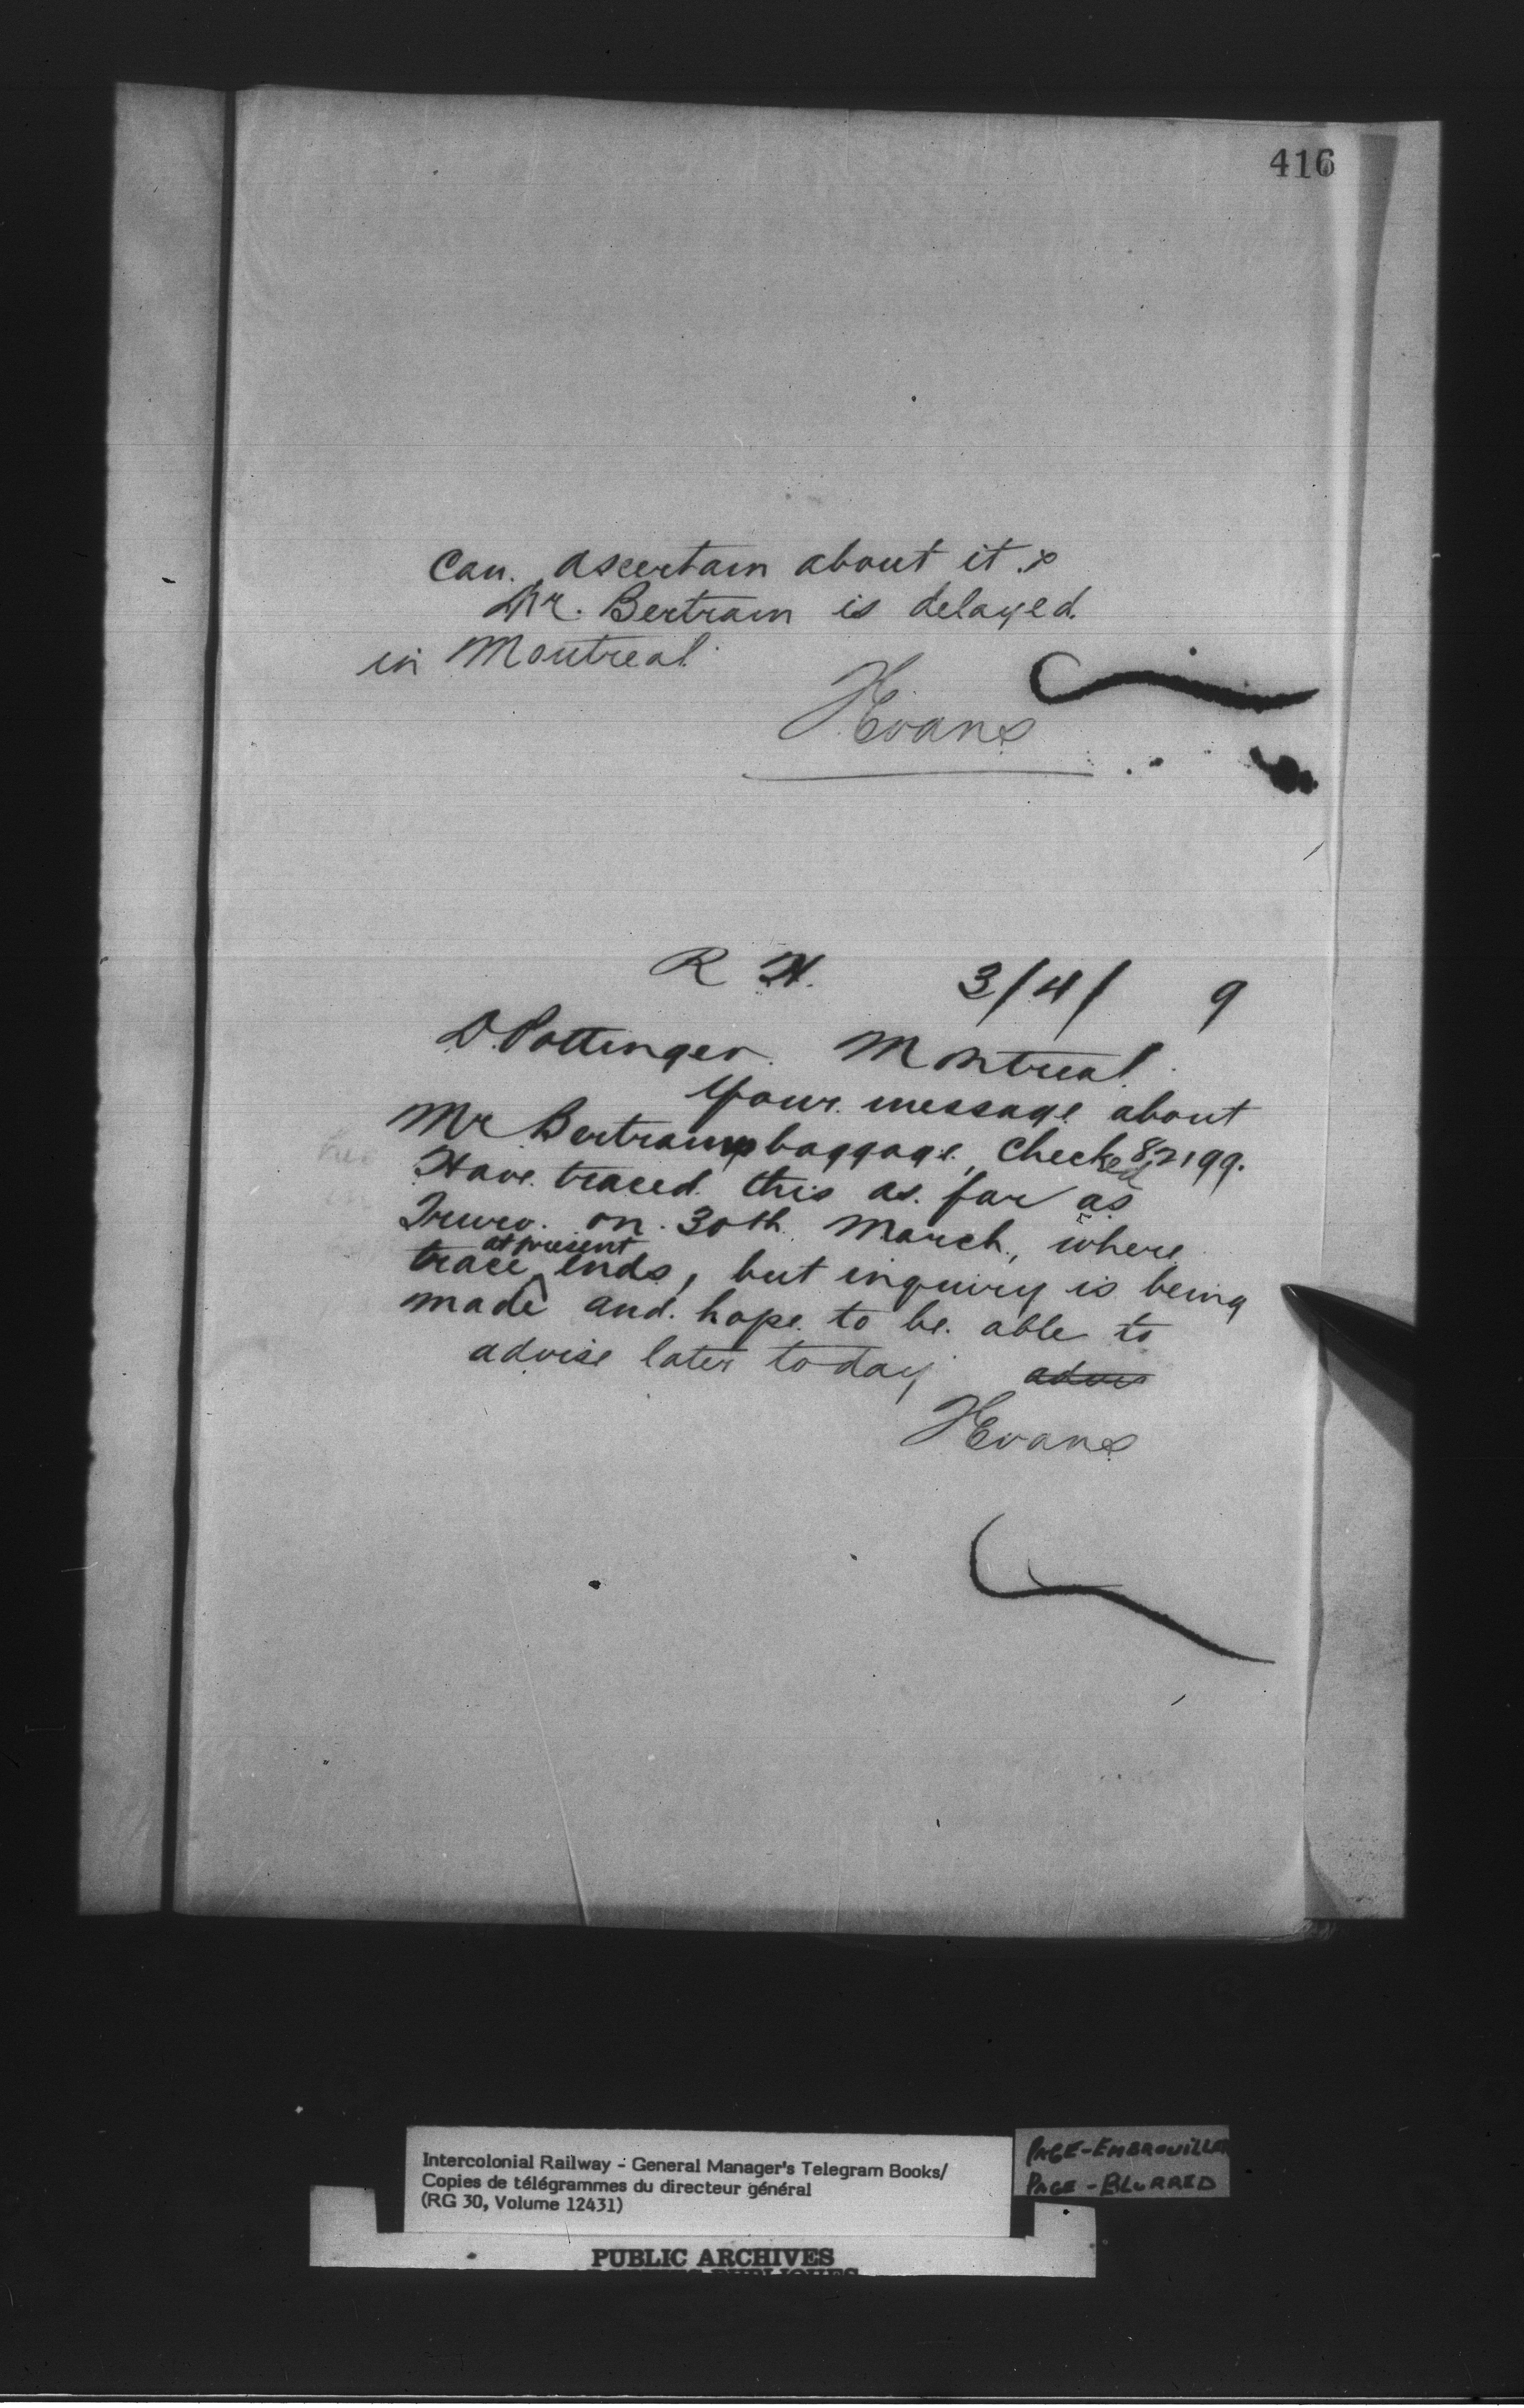 416
Can. ascertain about it. &
Mr. Bertram is delayed.
in Montreal.
HEvans
R H. 3/4/ 9
D. Pottinger. Montreal.
Your message about
Mr Bertrams baggage, Checked 82199.
Have traced this as far as
Truro. on. 30th March, where
at present
trace ends, but inquiry is being
made and. hope. to be. able to
advise later today advis
HEvans
Intercolonial Railway - General Manager's Telegram Books/
Copies de télégrammes du directeur général
(RG 30, Volume 12431)
PAGE-EMBROUILLER
PAGE - BLURRED
PUBLIC ARCHIVES